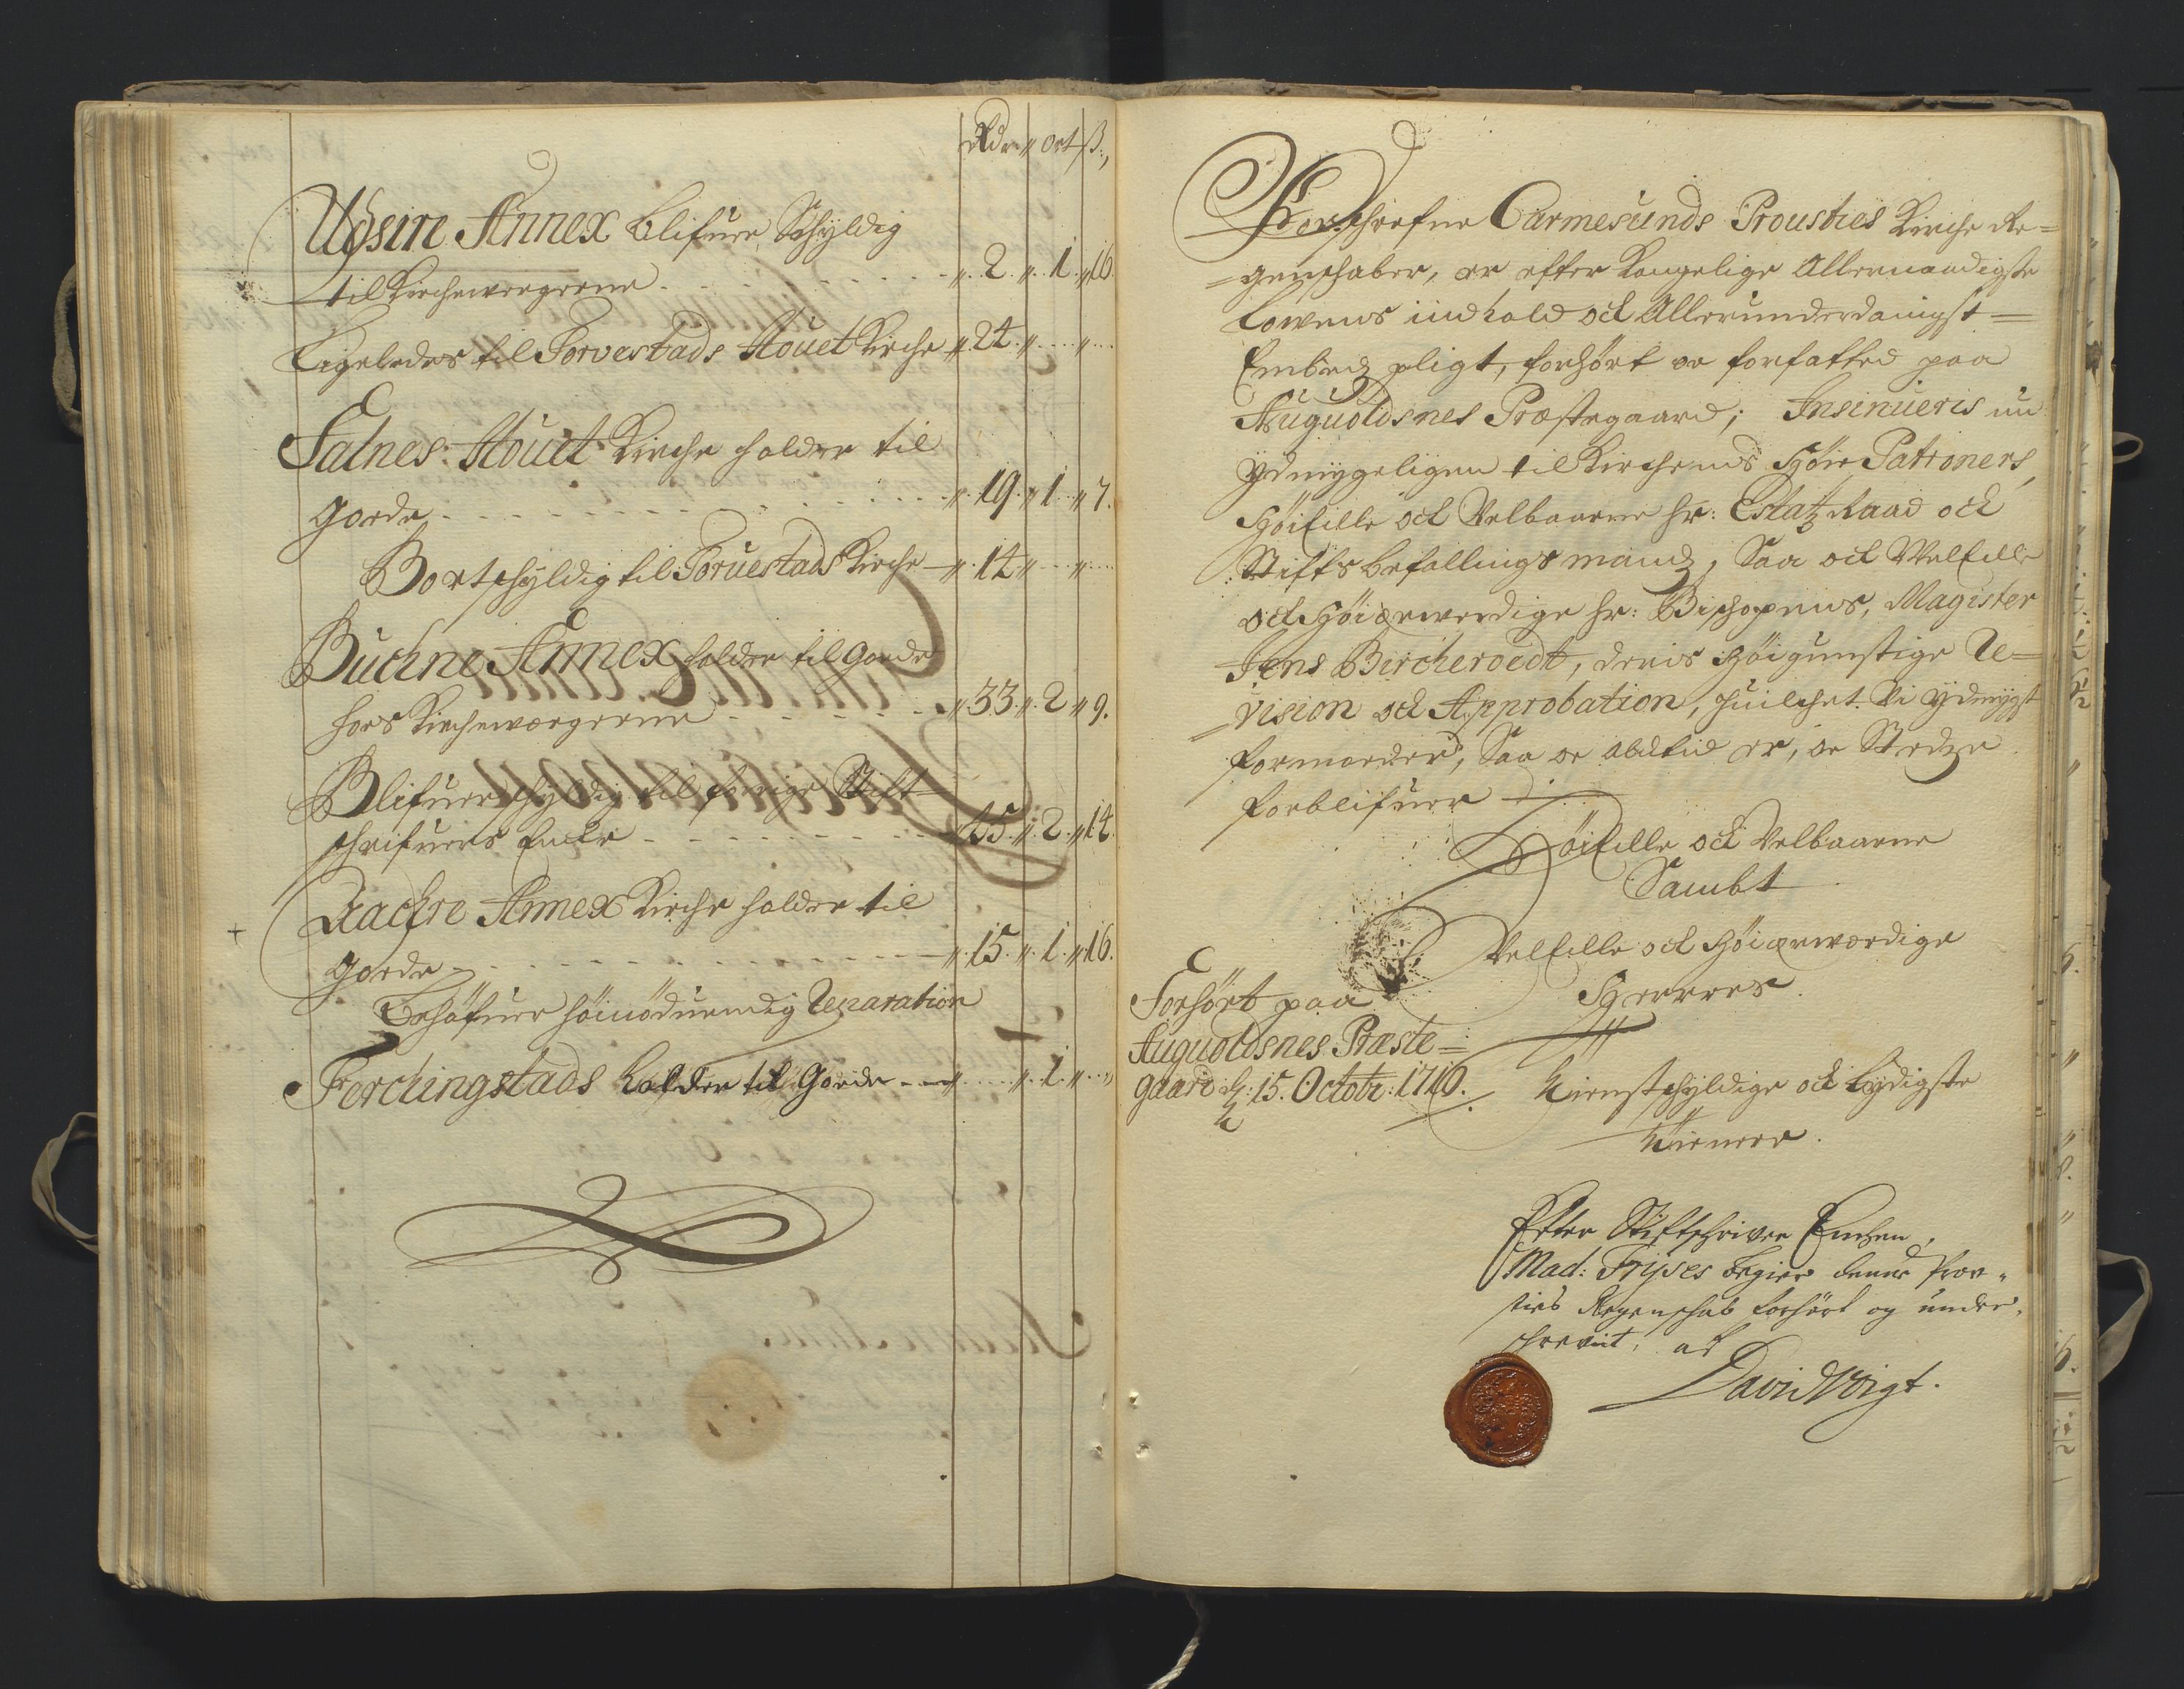 Rdr Ort ß
Udsire Annex blifuer Schyldig
til Kirchewergerne - - - 2 1 16
Ligeledes til Torvestads Houet Kirche 24
Falnes Houet Kirche holder til
gode - - - 19 1 7
Bortschyldig til Toruestads Kirche - 14
Buchne Annex holder til gode
hos Kirchewærgerne - - - 33 2 9
Blifuer schyldig til forrige Stift
schrifuers Encke - - - 45 2 14
+ Aackre Annex Kirche holder til
gode - - - 15 1 16
Behøfuer høinødvendig Reparation
Ferchingstads holder til gode - - 1
Forschrefne Carmesunds Prousties Kirche Re=
=genschaber, er efter Kongelige Allernaadigste
Lowens indhold och Allerunderdanigst=
Embedz pligt, forhørt oc forfatted paa
Auguoldsnes Præstegaard; Insinueris nu
ydmygeligen til Kirchens Høie Patroners,
Høiedle och Velbaarne Hr: Estatz Raad och
Stiftsbefallingsmand, Saa och Veledle
och Høiærwerdige Hr: Bischopens, Magister
Jens Bircheroedt, deris Høigunstige Re=
=vision och Approbation, huilchet Vi ydmygst
formoder, Saa oc altid er, oc Stedze
forblifuer
Høiedle och Velbaarne
Sambt
Veledle och Høiærwærdige
Herrers
Forhørt paa
Auguoldsnes Præste=
gaard d: 15. Octobr: 1710.
Tienstschyldige och lydigste
Tienere.
Efter Stiftschriver Enchen,
Mad: Frijses begier denne Prov-
sties Regenschab forhørt og under-
schrevit, af
David Voigt.